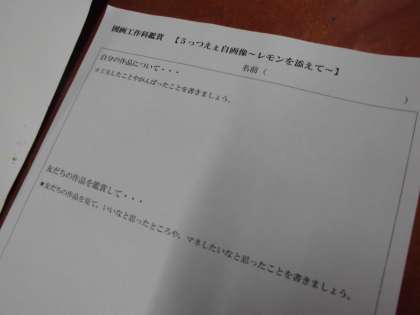 図画工作科鑑賞 【うっつえぇ自画像～レモンを添えて～】
名前（ ）
自分の作品について・・・
＊工夫したことやがんばったことを書きましょう。
友だちの作品を鑑賞して・・・
＊友だちの作品を見て、いいなと思ったところや、マネしたいなと思ったことを書きましょう。